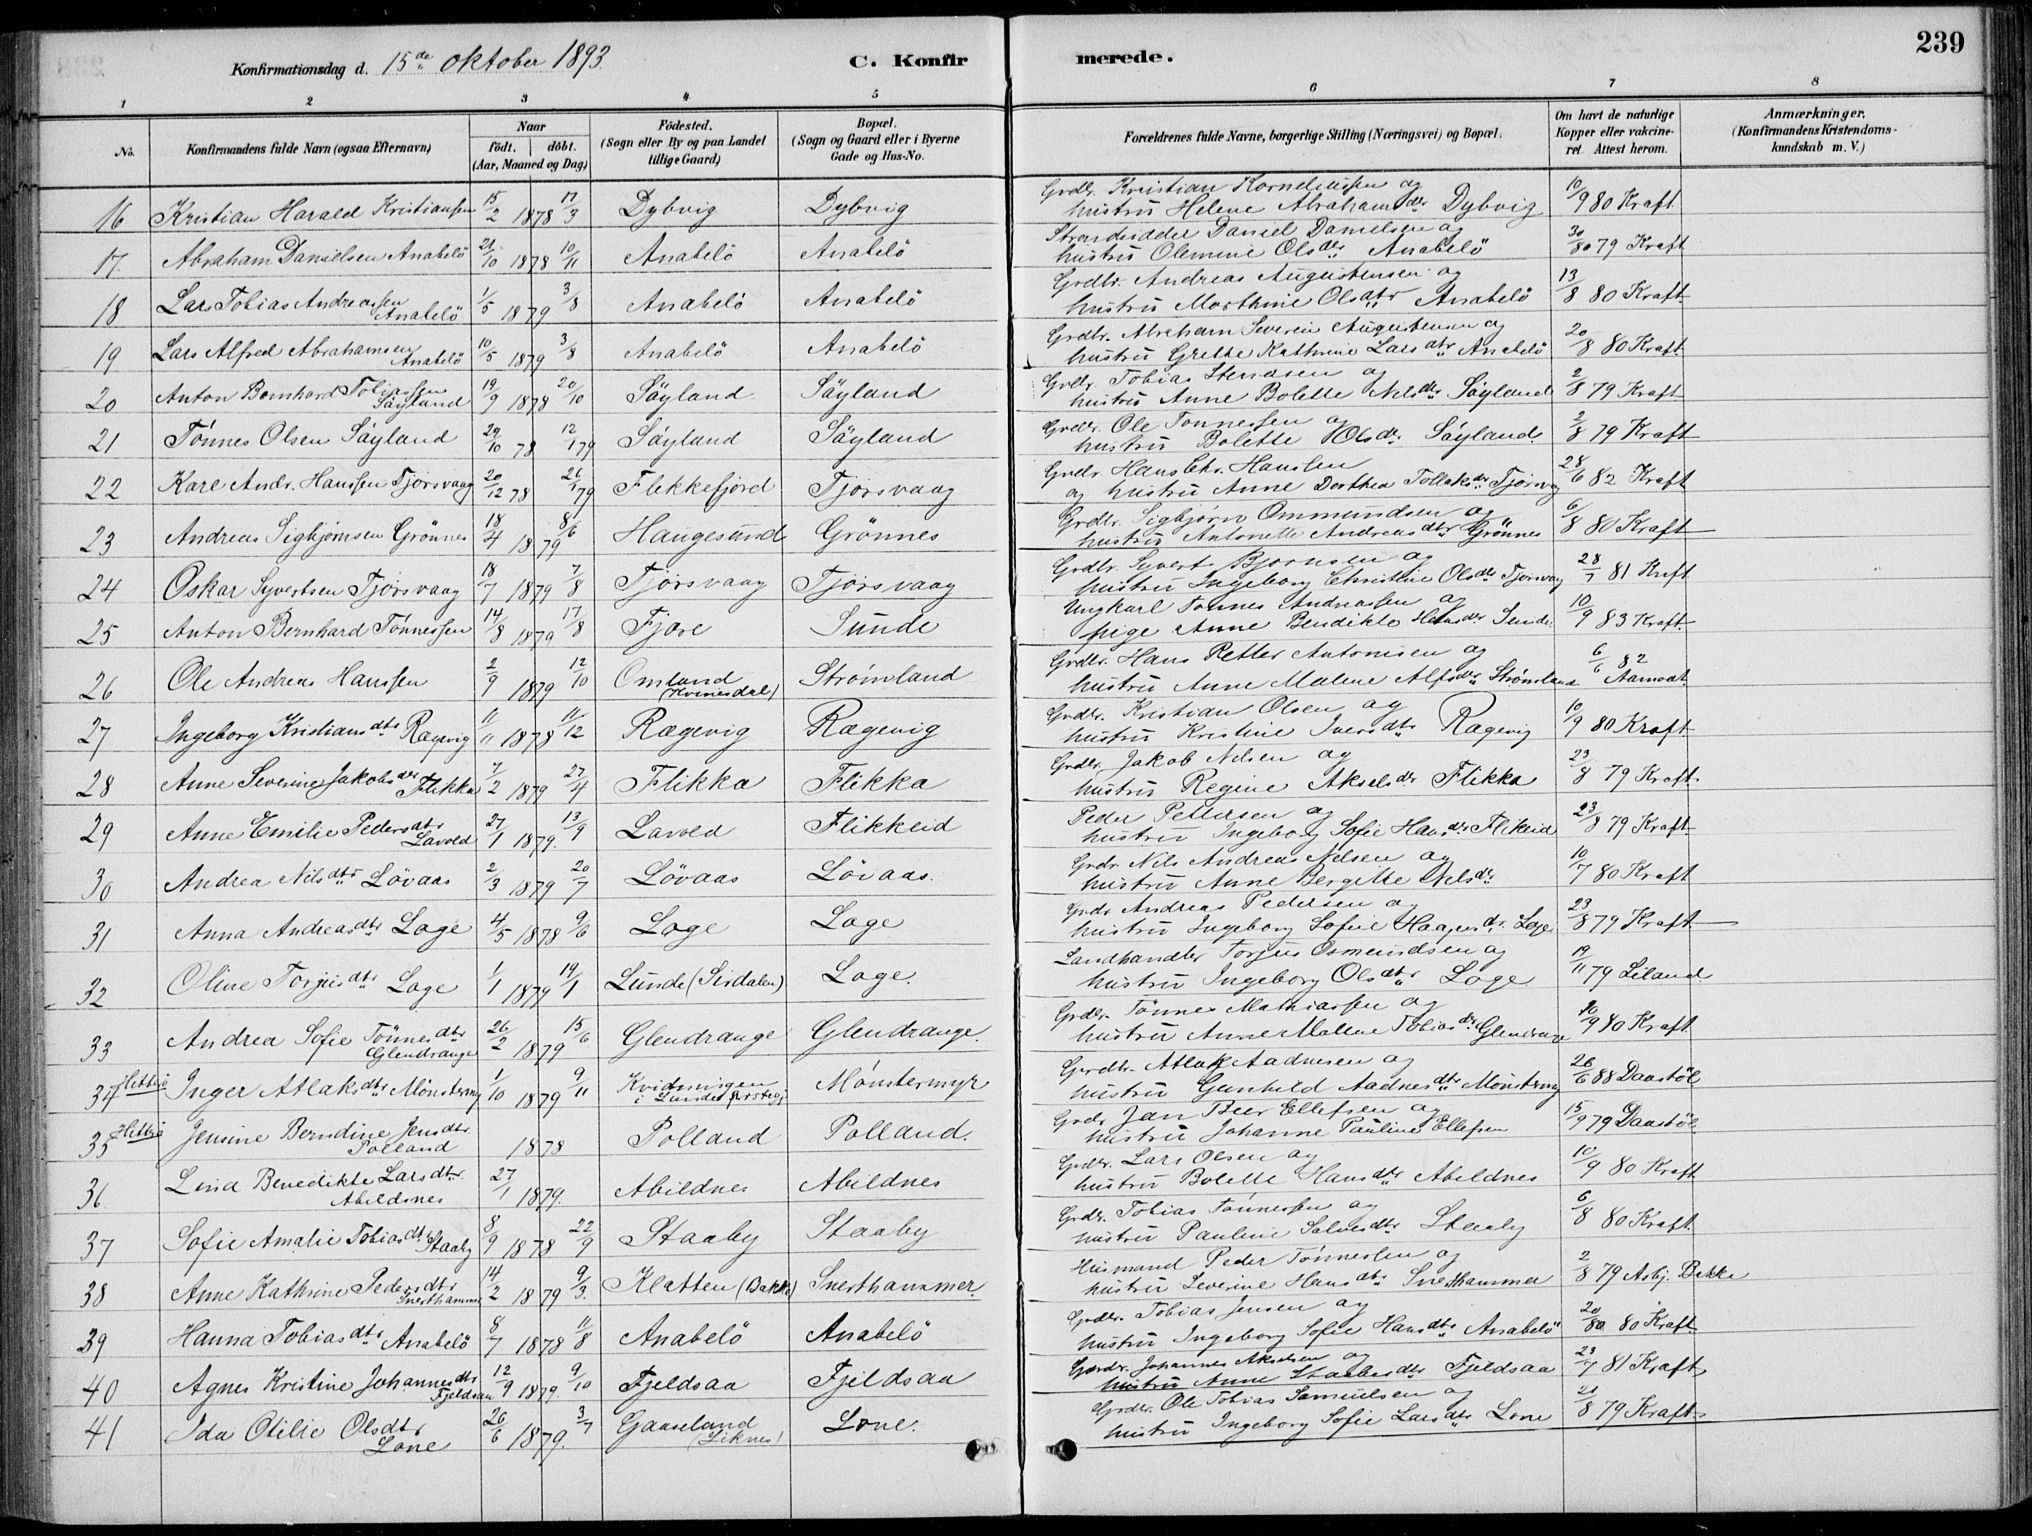 239
Konfirmationsdag d. 15de oktober 1893.
C. Konfirmerede.
1 2 3 4 5 6 7 8
No.
Konfirmandens fulde Navn (ogsaa Efternavn)
Naar
födt. döbt.
(Aar, Maaned og Dag)
Födested.
(Sogn eller By og paa Landet
tillige Gaard)
Bopæl.
(Sogn og Gaard eller i Byerne
Gade og Hus-No.
Forældrenes fulde Navne, borgerlige Stilling (Næringsvei) og Bopæl.
Om havt de naturlige
Kopper eller vakcine-
ret. Attest herom.
Anmærkninger.
(Konfirmandens Kristendoms-
kundskab m. V.)
16 Kristian Harald Kristiansen 15/2 1878 17/3 Dybvig Dybvig Grdbr. Kristian Korneliussen og
hustru Helene Abrahamsdtr Dybvig 10/9 80 Kraft
17. Abraham Danielsen Anabelö 21/10 1878 10/11 Anabelö Anabelö Strandsidder Daniel Danielsen og
hustru Olemine Olsdtr Anabelö 30/80 79 Kraft
18 Lars Tobias Andreassen
Anabelö 1/5 1879 3/8 Anabelö Anabelö Grdbr. Andreas Augustensen og
hustru Marthine Olsdtr Anabelö 13/8 80 Kraft
19 Lars Alfred Abrahamsen
Anabelö 10/5 1879 3/8 Anabelö Anabelö Grdbr. Abraham Severin Augustensen og
hustru Grethe Kathrine Larsdtr Anabelö 20/8 80 Kraft
20 Anton Bernhard Tobiassen
Söyland 19/9 1878 20/10 Söyland Söyland Grdbr. Tobias Stensen og
hustru Anne Bolette Nilsdtr Söyland 2/8 79 Kraft
21 Tönnes Olsen Söyland 29/10 78 12/1 79 Söyland Söyland Grdbr. Ole Tönnessen og
hustru Bolette Olsdtr Söyland. 2/8 79 Kraft
22 Karl Andr. Hanssen Tjörsvaag 20/12 78 26/1 79 Flekkefjord Tjörsvaag Grdbr. Hans Chr. Hansen
og hustru Anne Dorthea Tollaksdtr Tjörsvag 28/6 82 Kraft
23 Andreas Sigbjörnsen Grönnes 18/4 1879 8/6 Haugesund Grönnes Grdbr. Sigbjörn Ommundsen og
hustru Antonette Andreasdtr Grönnes 6/8 80 Kraft
24 Oskar Syvertsen Tjörsvaag 18/7 1879 7/8 Tjörsvaag Tjörsvaag Grdbr. Syvert Bjornsen og
hustru Ingeborg Christine Olsdtr Tjörsvag 28/7 81 Kraft
25 Anton Bernhard Tönnessen 14/8 1879 17/8 Fjære Sunde Ungkarl Tönnes Andreassen og
pige Anne Bendikte Hansdtr Sunde 10/9 83 Kraft
26 Ole Andreas Hanssen 2/9 1879 12/10 Omland
(Kvinesdal) Strömland Grdbr. Hans Retter Antonisen og
hustru Anne Malene Alfsdtr Strömland 6/6 82
Aamodt.
27 Ingeborg Kristiansdtr Rægevig 11/11 1878 11/12 Rægevig Rægevig Grdbr. Kristian Olsen og
hustru Kristine Iversdtr Rægevig 10/9 80 Kraft
28 Anne Severine Jakobsdtr
Flikka 7/2 1879 27/4 Flikka Flikka Grdbr. Jakob Nilsen og
hustru Regine Akselsdtr Flikka 23/8 79 Kraft
29 Anne Emilie Pedersdtr
Lavold 27/1 1879. 13/9 Lavold Flikkeid Peder Pettersen og
hustru Ingeborg Sofie Hansdtr Flikeid 23/8 79 Kraft
30 Andrea Nilsdtr Lövaas 2/3 1879 20/7 Lövaas Lövaas. Grdbr. Nils Andreas Nilsen og
hustru Anne Bergitte Nilsdtr 10/7 80 Kraft
31 Anna Andreasdtr Loge 4/5 1878 9/6 Loge Loge Grdbr. Andreas Pedersen og
hustru Ingeborg Sofie Haagensdr. Loge 23/8 79 Kraft
32 Oline Torjusdtr Loge 1/1 1879 19/1 Lunde (Sirdalen) Loge. Landhandler Torjus Osmundsen og
hustru Ingeborg Olsdtr Loge 19/11 79 Liland
33 Andrea Sofie Tönnesdtr
Glendrange 26/2 1879 15/6 Glendrange Glendrange. Grdbr. Tönnes Mathiassen og
hustru Anne Malene Tobiasdtr Glendrange 10/9 80 Kraft
34 Hitterö Inger Atlaksdtr Mönstermyr 1/10 1879 9/11 Kvidningen
i Lunde prstegj Mönstermyr Grdbr. Atlak Aadnesen og
hustru Gunhild Aadnesdtr Mönstermyr 26/6 88 Daastöl
35 Hitterö Jensine Berndine Jensdtr
Polland 1878 Polland Polland. Grdbr. Jan Beer Ellefsen og
hustru Johanne Pauline Ellefsen 15/9 79 Daastöl
36 Lina Benedikte Larsdtr.
Abildsnes 27/1 1879. Abildnes Abildnes Grdbr. Lars Olsen og
hustru Bolette Hansdtr Abildnes 10/9 80 Kraft
37 Sofie Amalie Tobiasdtr Staaby 8/9 1878 22/9 Staaby Staaby Grdbr. Tobias Tönnessen og
hustru Pauline Salvesdtr Staaby 6/8 80 Kraft
38 Anne Kathrine Pedersdtr
Snerthammer 14/2 1879 9/3. Klatten (Bakke) Snerthammer Husmand Peder Tönnesen og
hustru Severine Hansdtr Snerthammer 2/8 79 Asbj. Bakke
39 Hanna Tobiasdtr Anabelö 8/7 1878 11/8 Anabelö Anabelö Grdbr. Tobias Jensen og
hustru Ingeborg Sofie Hansdtr Anabelö 20/80 80 Kraft
40 Agnes Kristine Johannesdtr
Fjeldsaa 12/9 1879. 9/10 Fjeldsaa Fjeldsaa Gardbr. Johannes Akselsen og
hustru Anne Fjeldsaa 23/7 81 Kraft
41 Ida Otilie Olsdtr
Lone 26/6 1879. 3/7 Gaaseland
(Liknes) Lone. Grdbr. Ole Tobias Samuelsen og
hustru Ingeborg Sofie Larsdtr Lone 21/8 79 Kraft